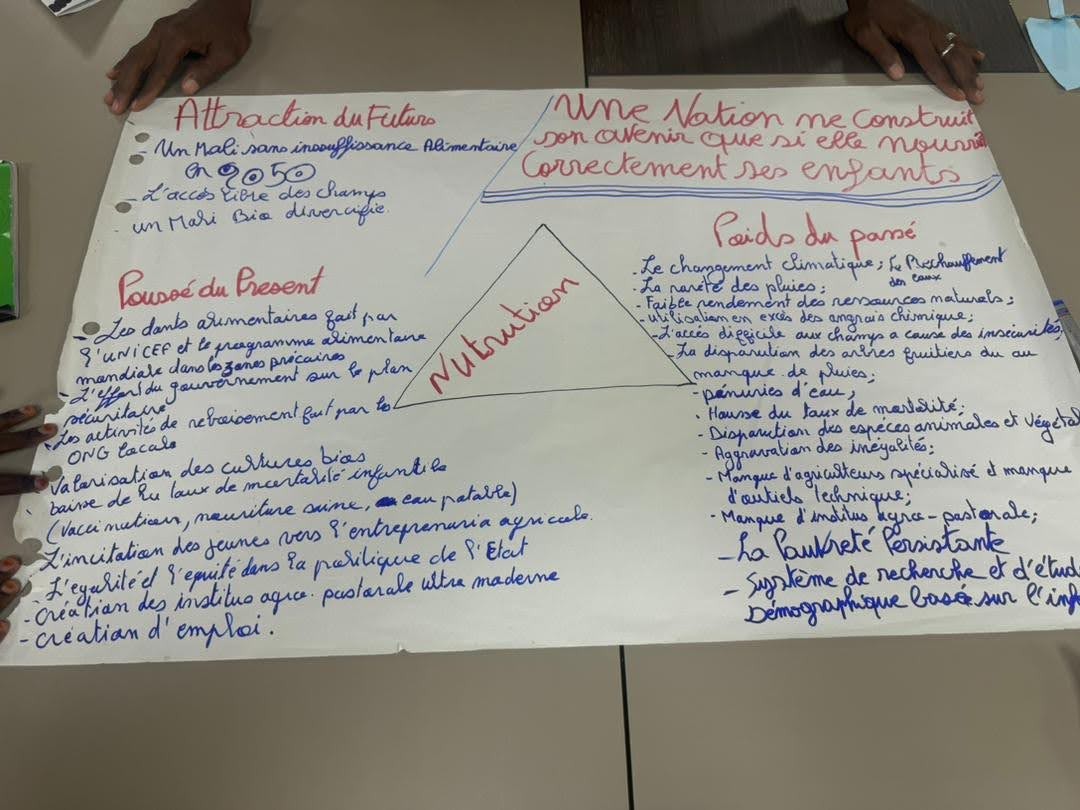 Attraction du Futurs
- Un Mali sans insouffissance Alimentaire
en 2050
- L'accès libre des champs
un Mali Bio divercifie.
Une Nation ne construit
son avenir que si elle nourrit
correctement ses enfants
Poussé du Present
- Les donts alimentaires fait par
l'UNICEF et le programme alimentaire
mondiale dans les zones précaires
- L'effort du gouvernement sur le plan
sécuritaire
- Les activités de reboisement fait par les
ONG locals
- Valorisation des cultures bios
- baise de du taux de mortalité infantile
(vaccination, nourriture saine, eau potable)
- L'incitation des jeunes vers l'entreprenuria agricole.
- L'egalité et l'equité dans la politique de l'Etat
- création des institus agro-pastorale ultra moderne
- création d'emploi.
Nutrution
Poids du passé
- Le changement climatique; Le Rechauffement
des eaux
- La rareté des pluies;
- Faible rendement des ressources naturels;
- utilisation en excés des angrais chimique;
- L'accès difficile aux champs a cause des insécurités;
- La disparution des arbres fruitiers du au
manque de pluies;
- pénuries d'eau;
- Hausse du taux de mortalité;
- Disparution des espèces animales et végétal
- Aggravation des inégalités;
- Manque d'agriculteurs spécialisé et manque
d'outiels technique;
- Manque d'institus agro-pastorale;
- La Pauvreté Persistante
- Système de recherche et d'étud
Démographique basée sur l'inf